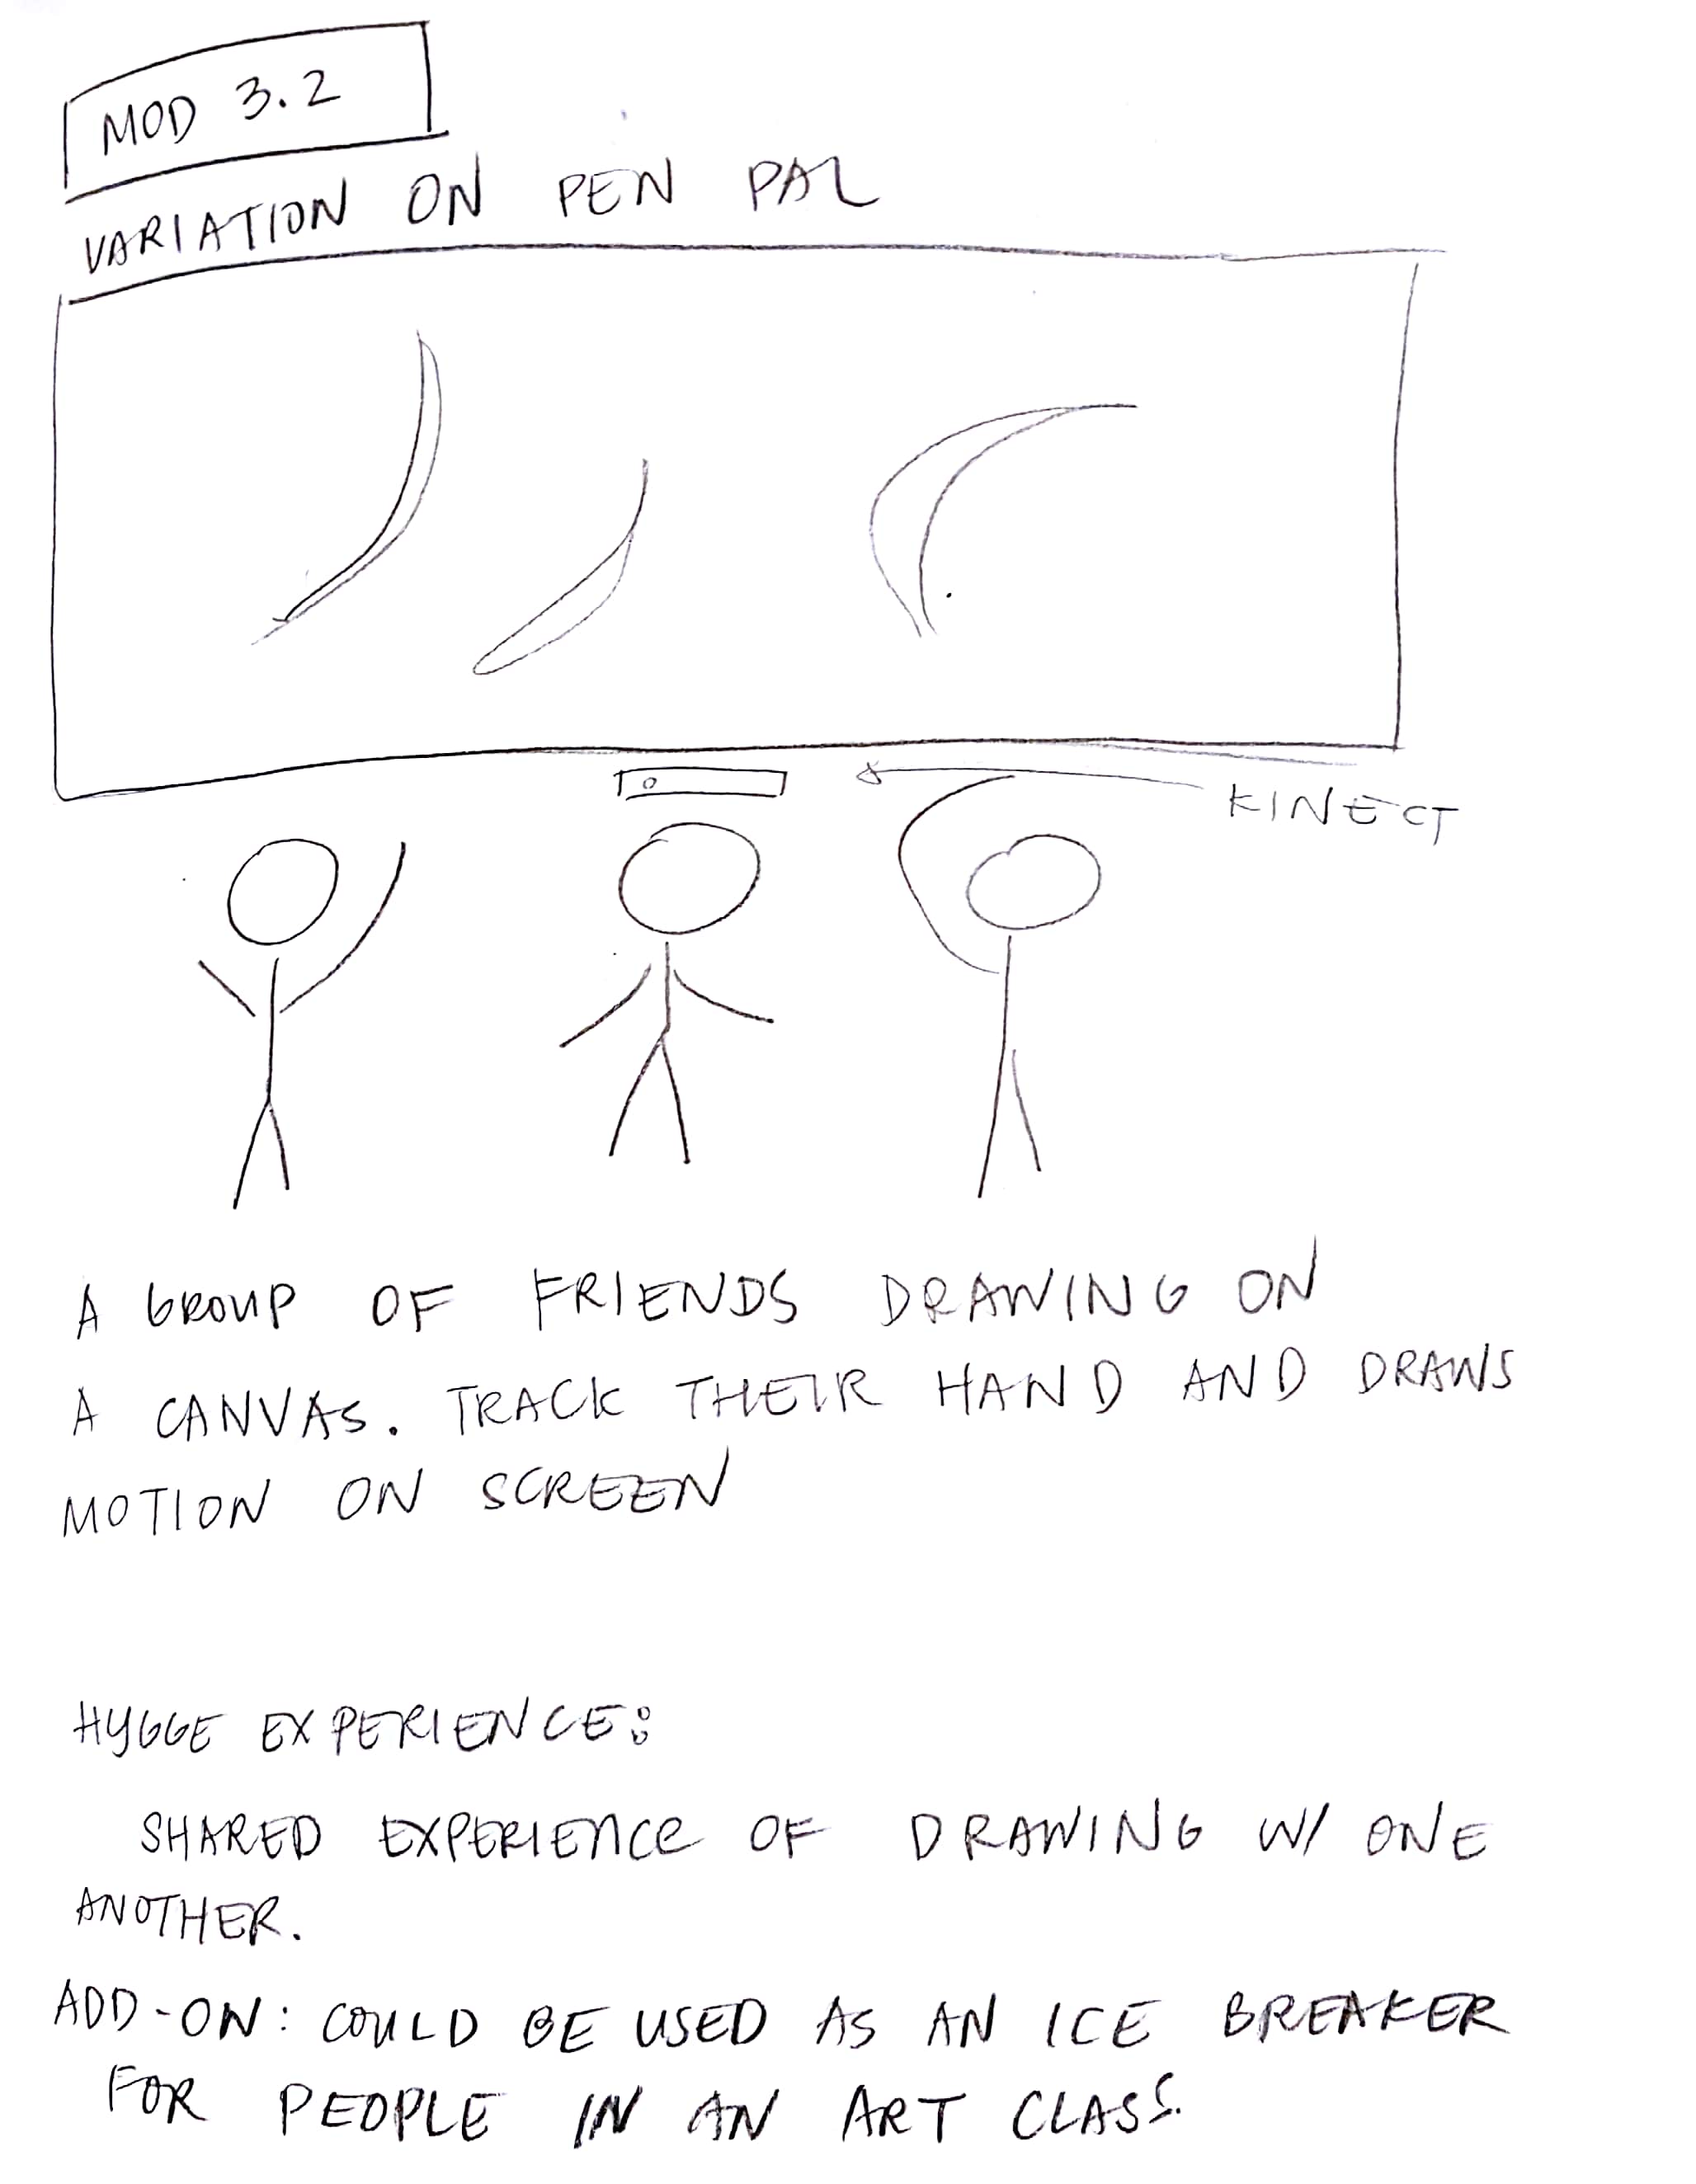 MOD 3.2
VARIATION ON PEN PAL
KINECT
A GROUP OF FRIENDS DRAWING ON
A CANVAS. TRACK THEIR HAND AND DRAWS
MOTION ON SCREEN
HYGGE EXPERIENCE:
SHARED EXPERIENCE OF DRAWING W/ ONE
ANOTHER.
ADD-ON: COULD BE USED AS AN ICE BREAKER
FOR PEOPLE IN AN ART CLASS.